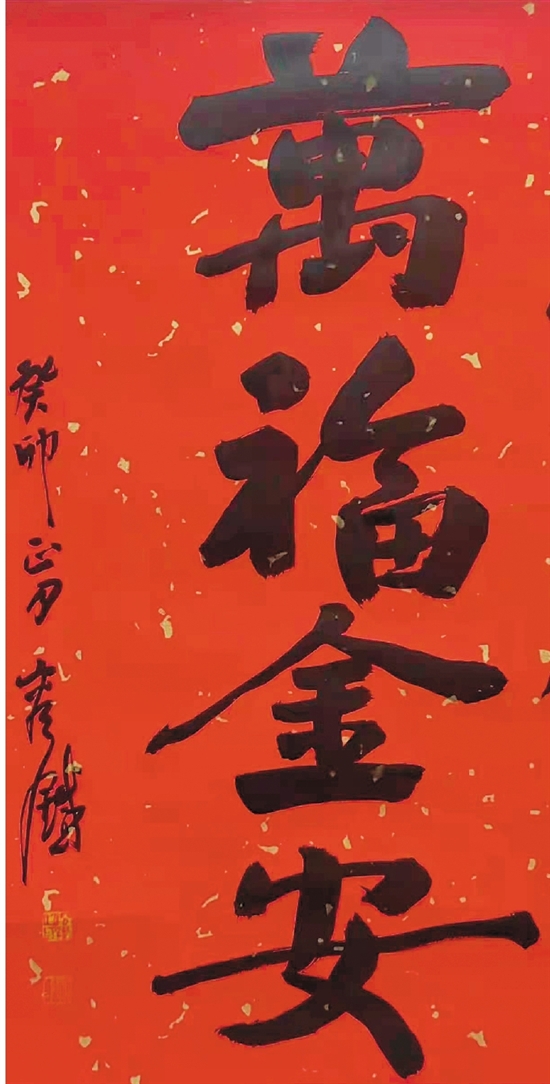 萬福金安
癸卯正月